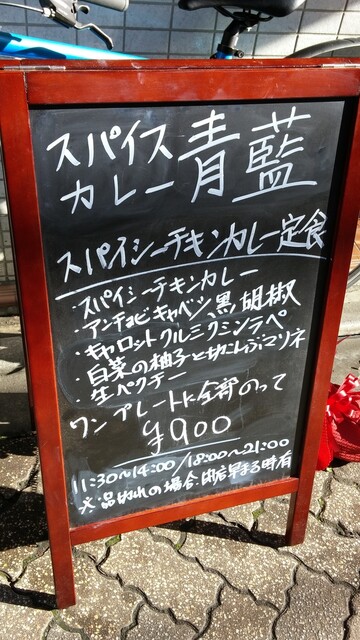 スパイス
カレー 青藍
スパイシーチキンカレー定食
・スパイシーチキンカレー
・アンチョビキャベツ、黒胡椒
・キャロットクルミクミンラペ
・白菜の柚子と切こんぶマリネ
・生ペクテー
ワンプレートに全部のって
¥900
11:30〜14:00/18:00〜21:00
※品切れの場合、閉店早まる時有